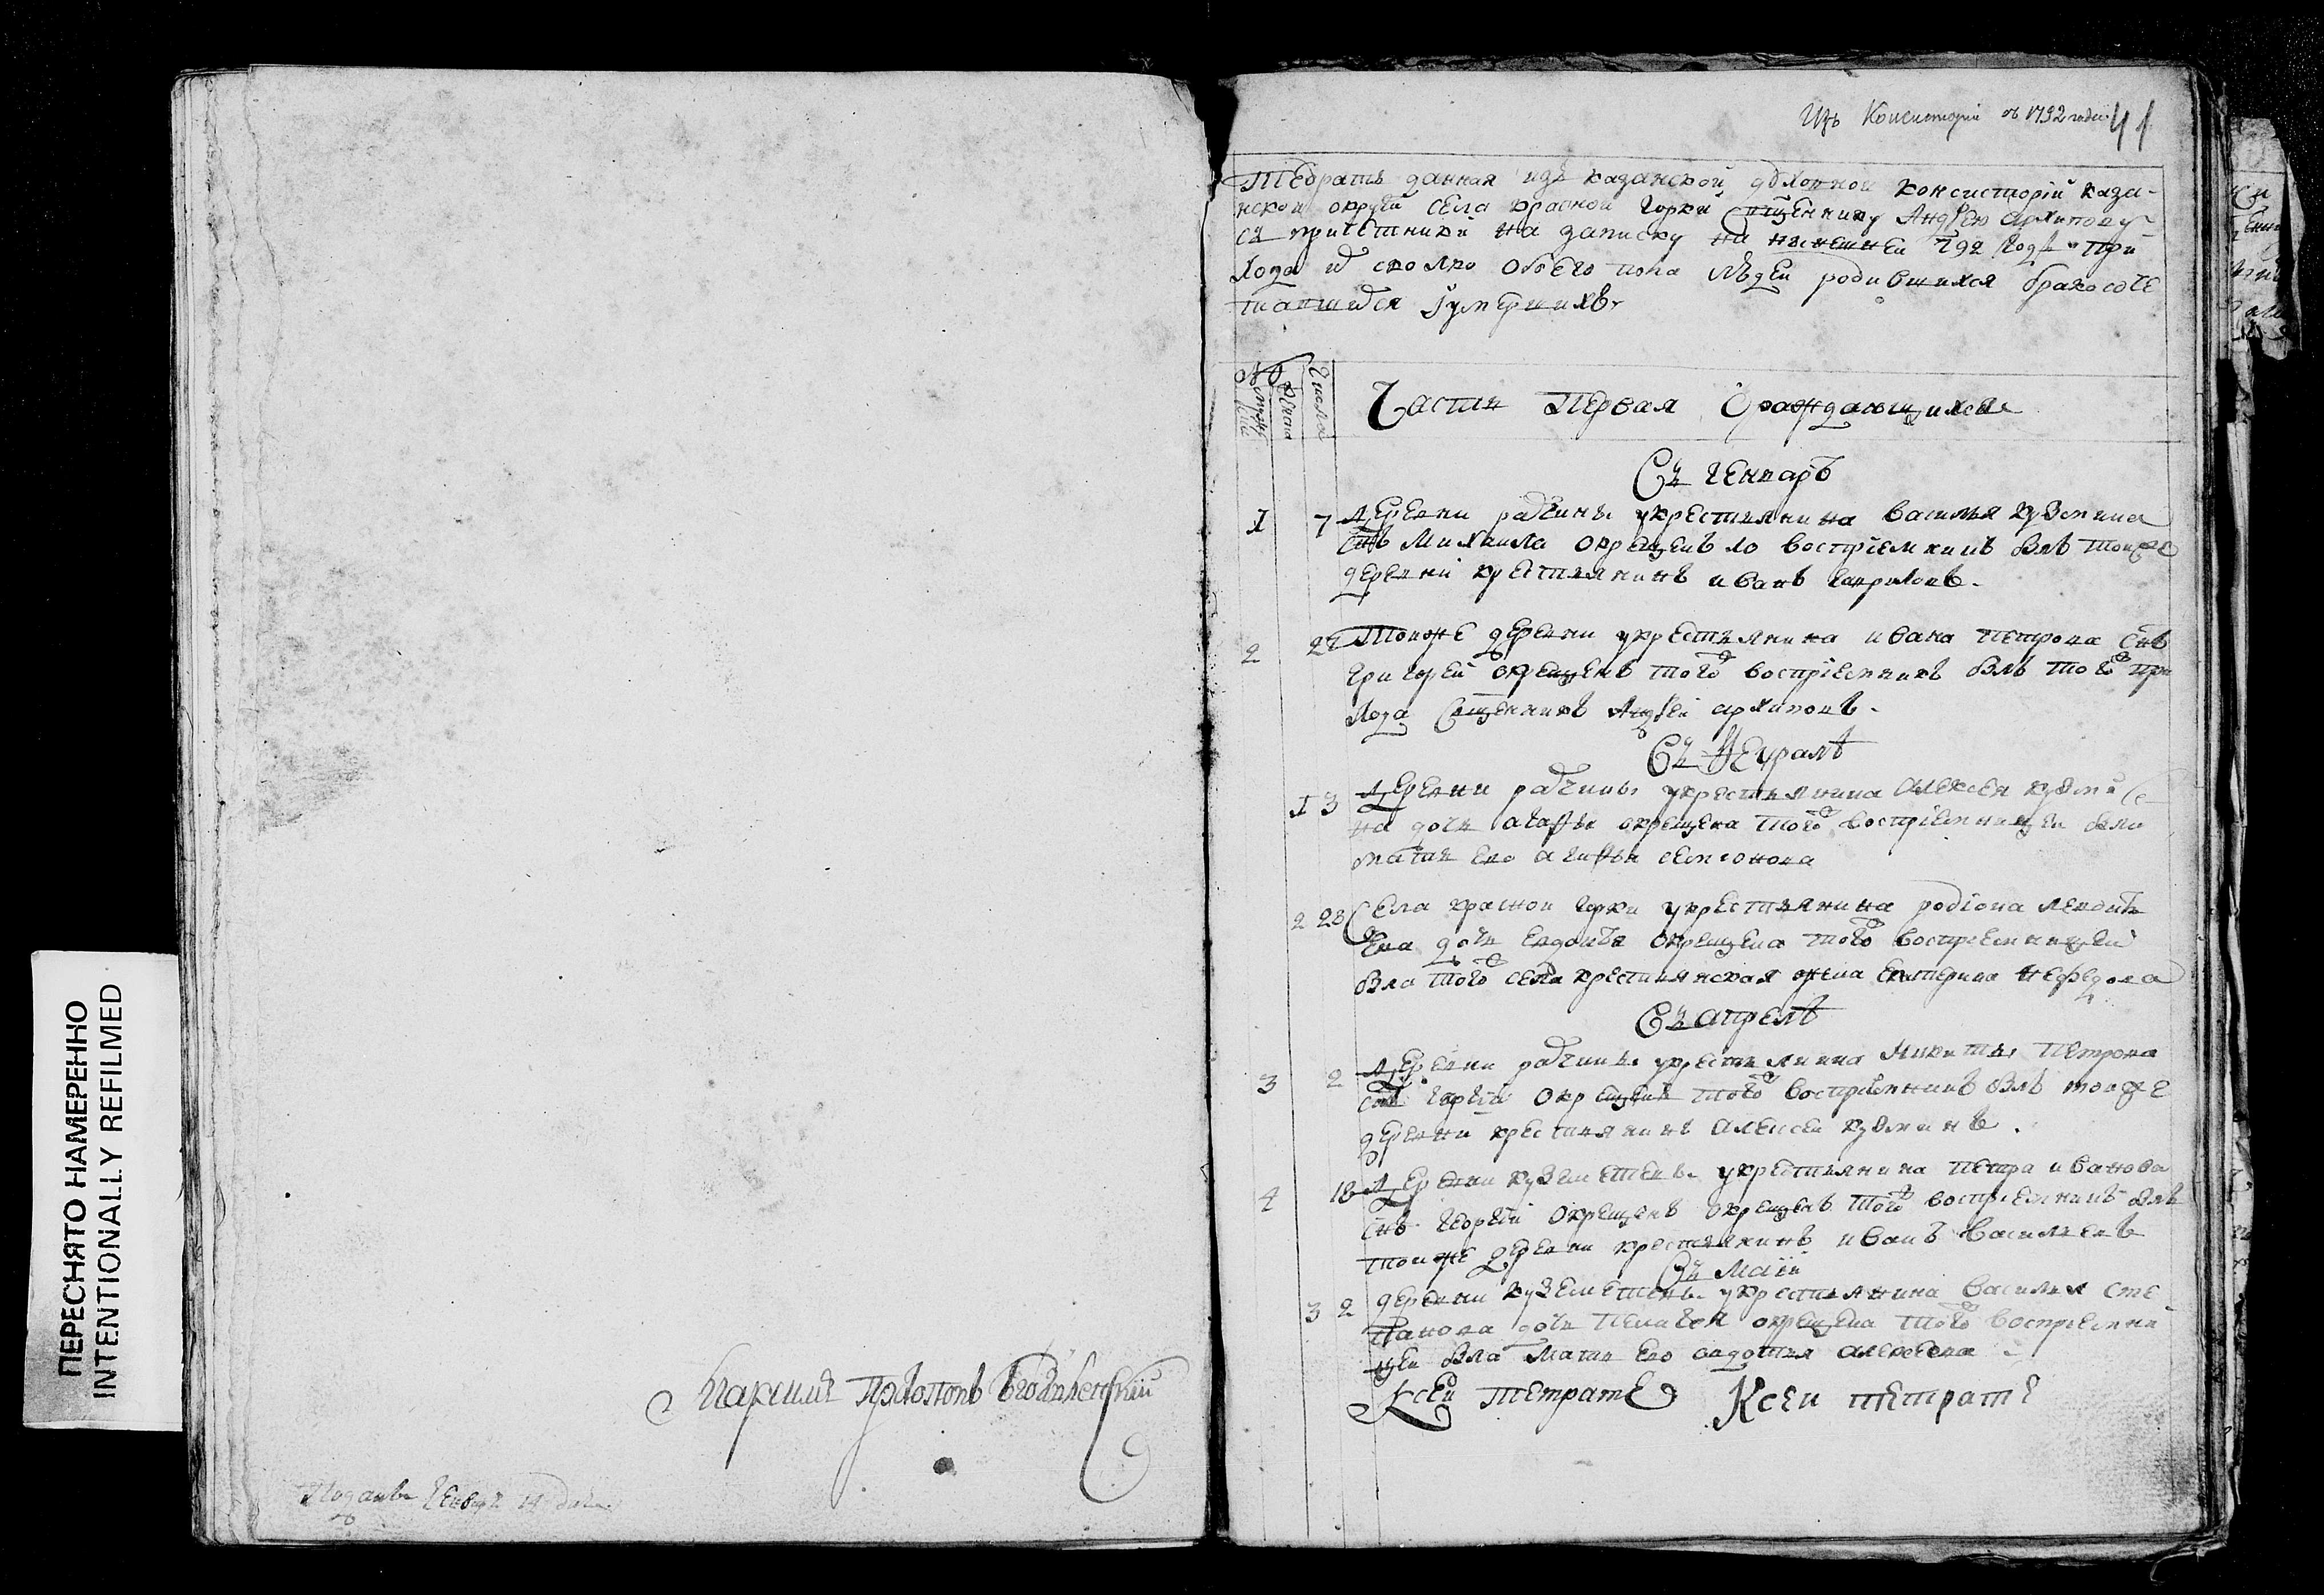 ПЕРЕСНЯТО НАМЕРЕННО
INTENTIONALLY REFILMED
Поданъ Генваря 14 дня
Изъ Консисторіи 1792 года 41
Тедрать данная изъ казанской духовной консисторіи каза-
нской округи села красной горки Сщеннику Андрею Архипову
съ причетники на записку на нынешней 792 годъ при
хода и сколко обоего пола людей родившихся бракосоче
тавшихся и умершихъ
мужеска женска Числа
Часть Первая О раждающихся
Въ генварѣ
1 7 деревни у крестьянина василья кузмина
снъ Михаила окрещенъ воспріемникъ былъ тоиже
деревни крестьянинъ иванъ гавриловъ
2 27 Тоиже деревни у крестьянина ивана петрова снъ
григорей окрещенъ того воспріемникъ былъ того при
хода Сщенникъ Андрей архиповъ
Въ Февралѣ
1 3 деревни у крестьянина алексея кузми
на дочь агафья окрещена того воспріемницеи была
мать ево агафья семионова
2 28 Села красной горки у крестьянина родіона леонть
ева дочь евдокѣя окрещена того воспріемницеи
была того села крестьянская жена екатерина нефедова
Въ апрелѣ
3 2 деревни у крестьянина Никиты Петрова
снъ окрещенъ того воспріемникъ былъ тоиже
деревни крестьянинъ алексеи кузминъ
4 18 деревни у крестьянина петра иванова
снъ георгіи окрещенъ окрещенъ того воспріемникъ былъ
тоиже деревни крестьянинъ иванъ васильевъ
Въ Маіи
3 2 деревни у крестьянина василья сте
панова дочь пелагея окрещена того воспріемни
цеи была мать ево авдотья алексеева
Ксеи тетрате Ксеи тетрате